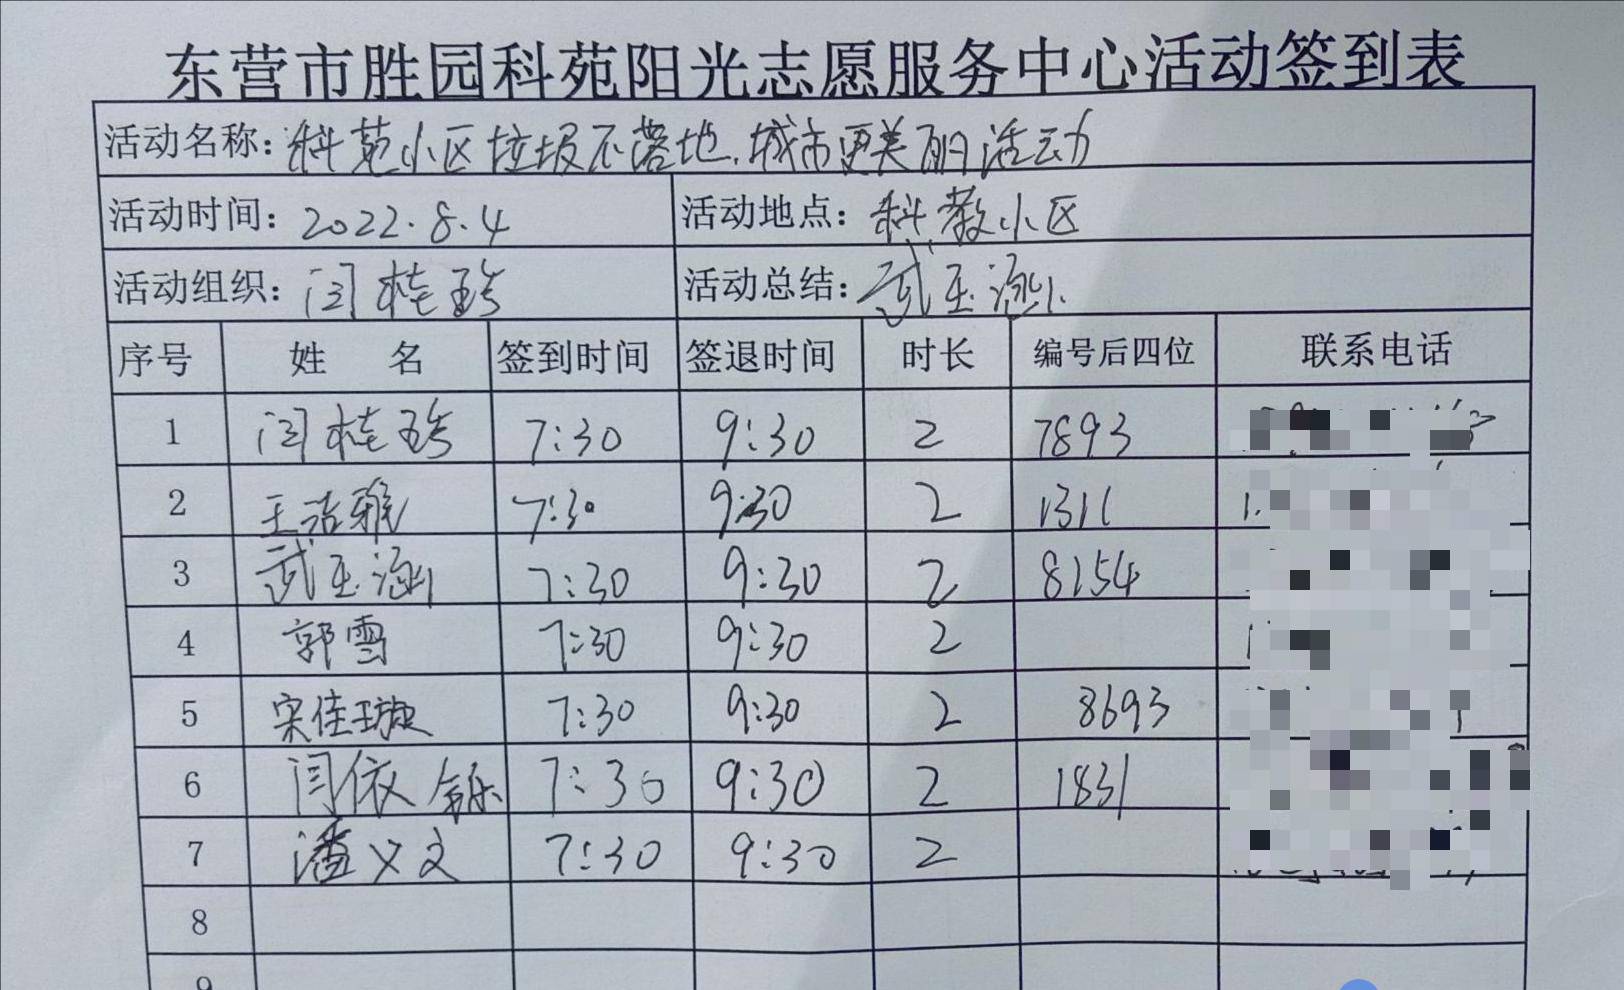 东营市胜园科苑阳光志愿服务中心活动签到表
活动名称：科苑小区垃圾不落地，城市更美丽活动
活动时间：2022.8.4 活动地点：科教小区
活动组织：闫桂珍 活动总结：武玉涵
序号 姓 名 签到时间 签退时间 时长 编号后四位 联系电话
1 闫桂珍 7:30 9:30 2 7893
2 王洁雅 7:30 9:30 2 1311
3 武玉涵 7:30 9:30 2 8154
4 郭雪 7:30 9:30 2
5 宋佳璇 7:30 9:30 2 8693
6 闫依铄 7:30 9:30 2 1831
7 潘义文 7:30 9:30 2
8
9